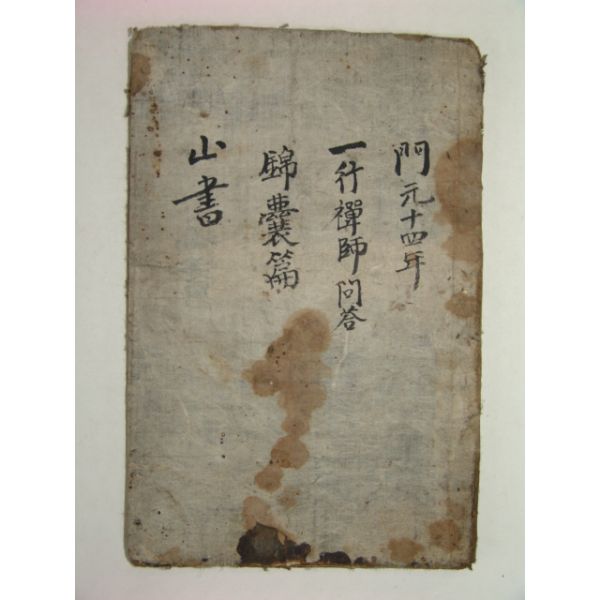 閂元十四年
一行禪師问答
錦囊篇
山書